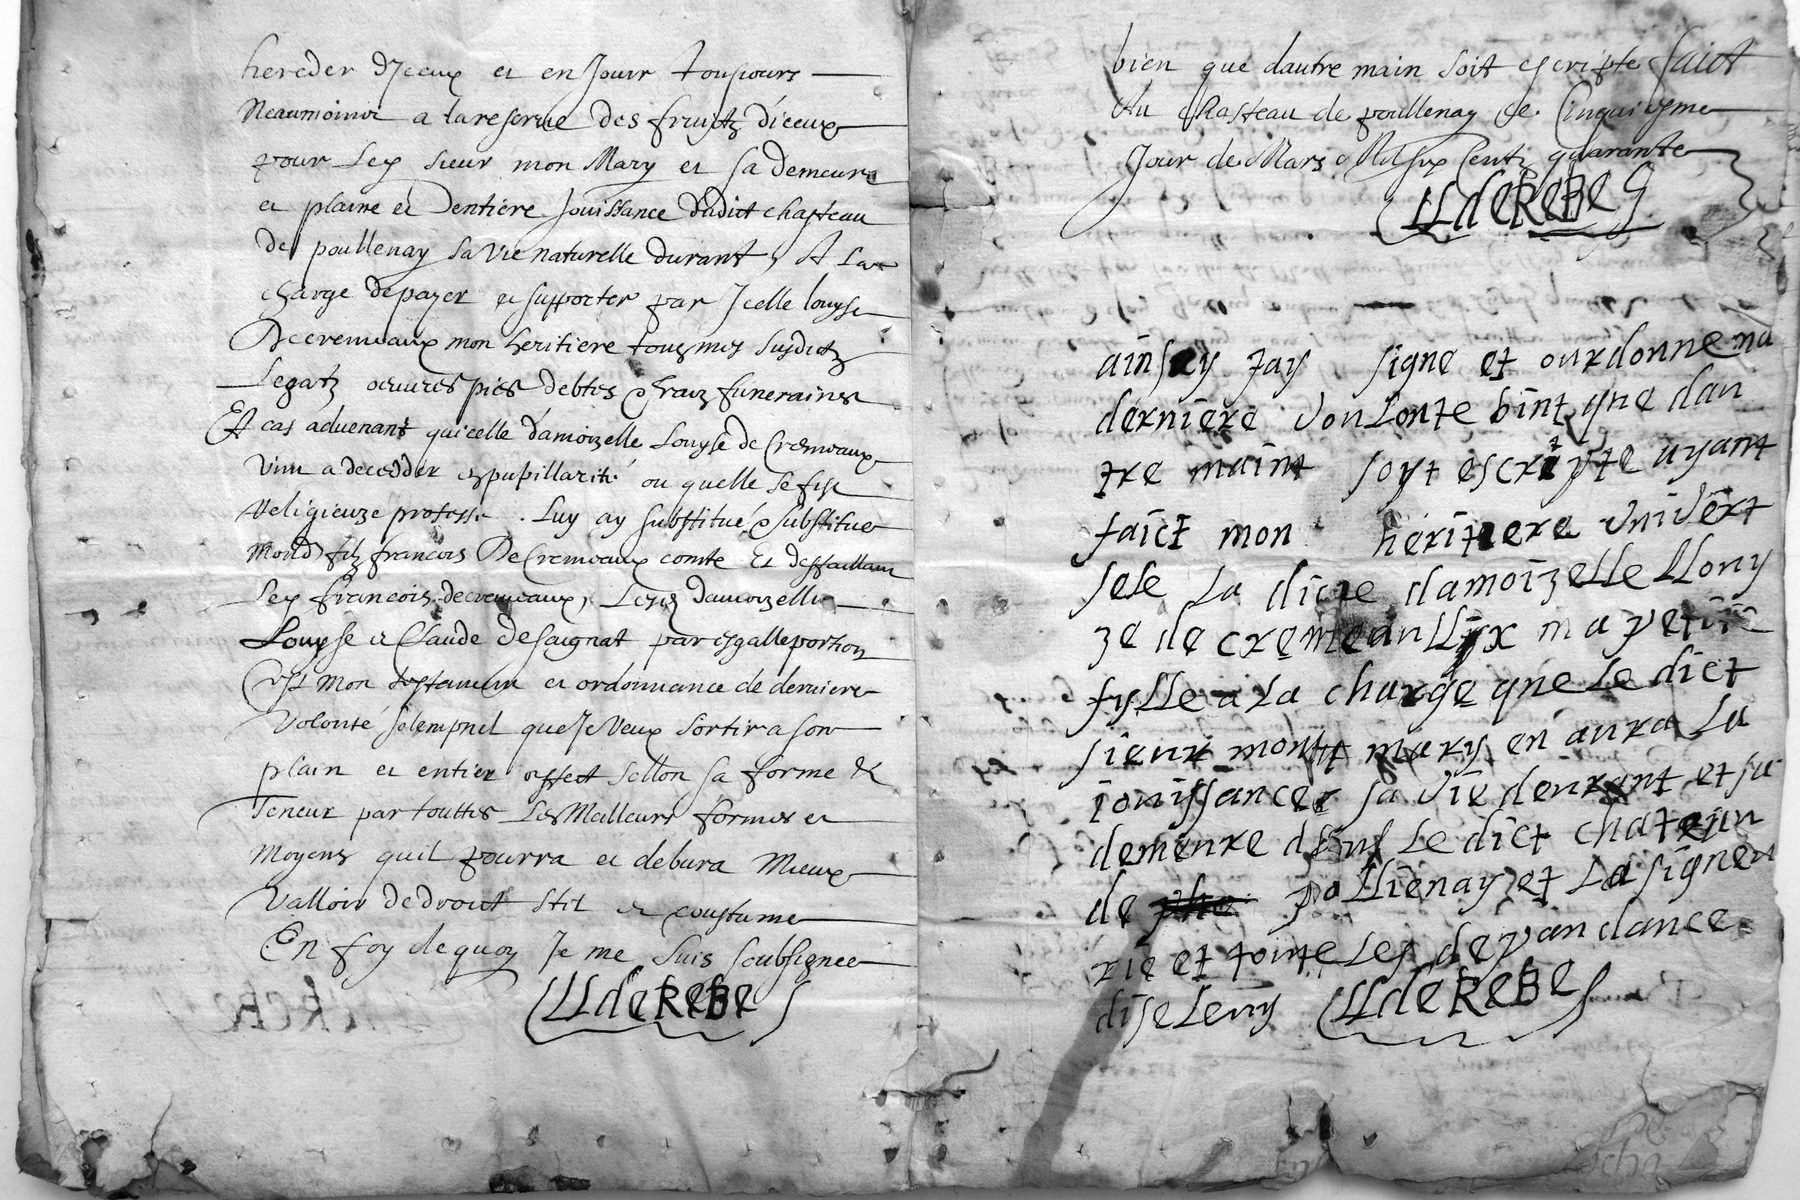 hereder d'Jceux et en Jouir tousiours
Neaumoins a la reserve des fruitz d'iceux
pour Led sieur mon Mary et sa demeure
et plaine et Dentiere Jouissance dudict chasteau
de poullenay sa Vie naturelle durant, A La
charge de payer et supporter par Jcelle louyse
De cremeaux mon heritiere tous mes susdictz
Legatz œuvres pies debtes & fraiz funeraires
Et cas advenant qu'icelle damoizelle Louyse de Cremeaux
Vint a decedder en pupillarité ou quelle se fist
Religieuze professe. Luy ay substitué & substitue
Mond filz francois De Cremeaux comte Et deffaillant
Led francois de cremeaux, Lesd damoizelles
Louyse et Claude de saignat par esgalle portion
C'est Mon testament et ordonnance de derniere
Volonté solempnel que Je Veux sortir a son
plain et entier effect sellon sa forme &
Teneur par touttes Les Meilleurs formes et
Moyens quil pourra et debvra Mieux
Valloir de droict stil et coustume
En foy de quoy Je me suis soubsignee
LLdeREBE
bien que dautre main soit escripte faict
Au Chasteau de poullenay Ce Cinquiesme
Jour de Mars Mil six Centz quarante
LLdeREBE
ainsy jay signe et ourdonne ma
derniere vonlonte bint que dan
tre maint soyt escripte ayant
faict mon heritiere univert
sele La dicte damoizelle LLouy
ze de cremeaullyx ma petite
fylle a La charge que Le dict
sieur mont mary en aura La
iouissance sa vie dourant et sa
demeure dens Le dict chateaun
de pollienay et La signeu
rie et toute Les depandance
dise Leuy LLdeREBE